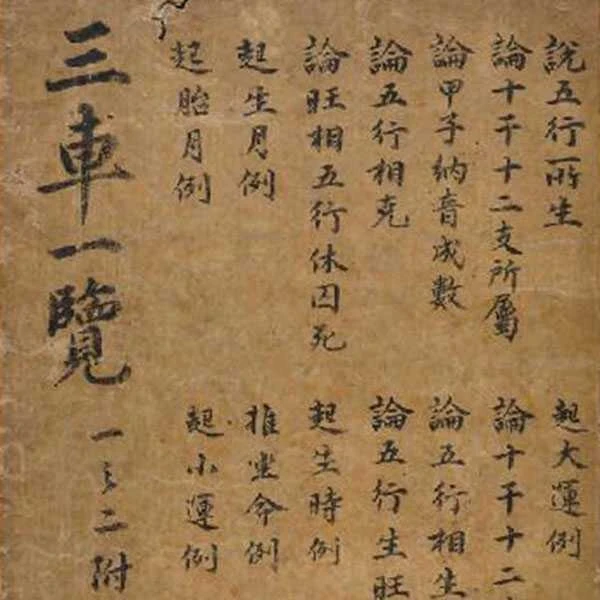 說五行所生
論十干十二支所屬
論甲子納音成數
論五行相克
論旺相五行休囚死
起生月例
起胎月例
起大運例
論十干十二
論五行相生
論五行生旺
起生時例
推坐命例
起小運例
三車一覽
一之二附